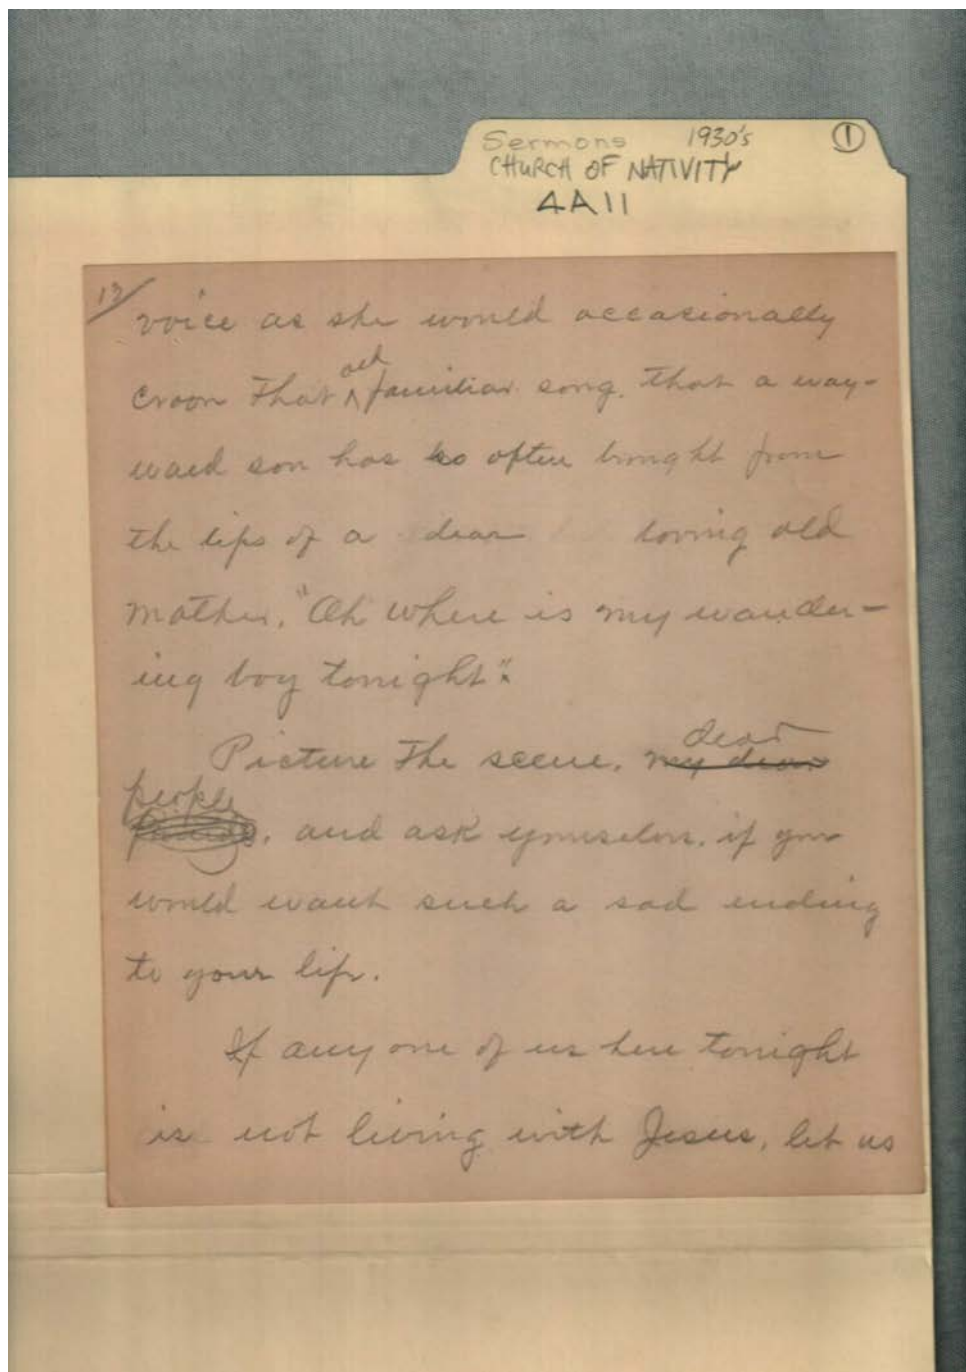 Sermons 1930's ①
CHURCH OF NATIVITY
4A11
voice as she would occasionally
old
croon that ^ familiar song, that a way-
ward son has so often brought from
the lips of a dear loving old
mother, "Oh where is my wander-
ing boy tonight".
dear
Picture the scene, my dear
people
friends, and ask yourselves, if you
would want such a sad ending
to your life.
If any one of us here tonight
is not living with Jesus, let us